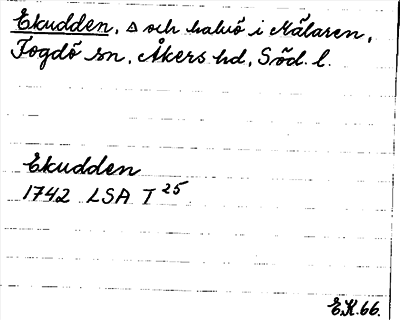 Ekudden, △ och halvö i Mälaren,
Fogdö sn, Åkers hd, Söd. l.
Ekudden
1742 LSA T 25
E.K.66.